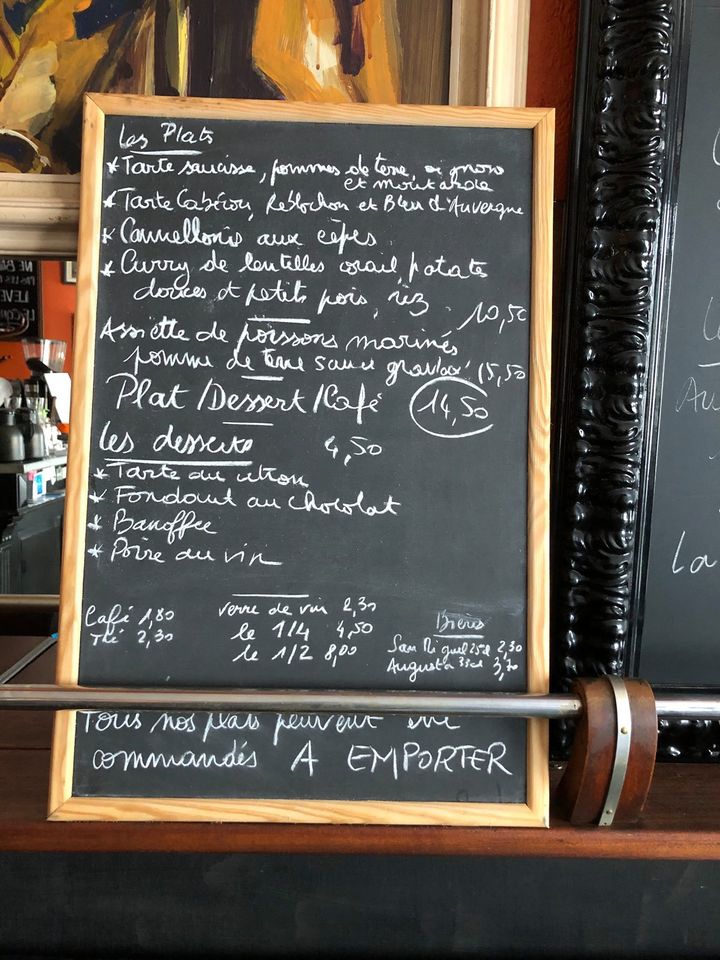 Les Plats
* Tarte saucisse, pommes de terre, oignons
et moutarde
* Tarte Cabécou, Reblochon et Bleu d'Auvergne
* Cannellonis aux cèpes
* Curry de lentilles corail, patates
douces et petits pois, riz 10,50
Assiette de poissons marinés
pomme de terre sauce gravlax 15,50
Plat/Dessert/Café 14,50
Les desserts 4,50
* Tarte au citron
* Fondant au chocolat
* Banoffee
* Poire au vin
Café 1,80
Thé 2,30
verre de vin 2,30
le 1/4 4,50
le 1/2 8,00
Bières
San Miguel 25cl 2,30
Augusta 33cl 3,70
Tous nos plats peuvent être
commandés A EMPORTER
La